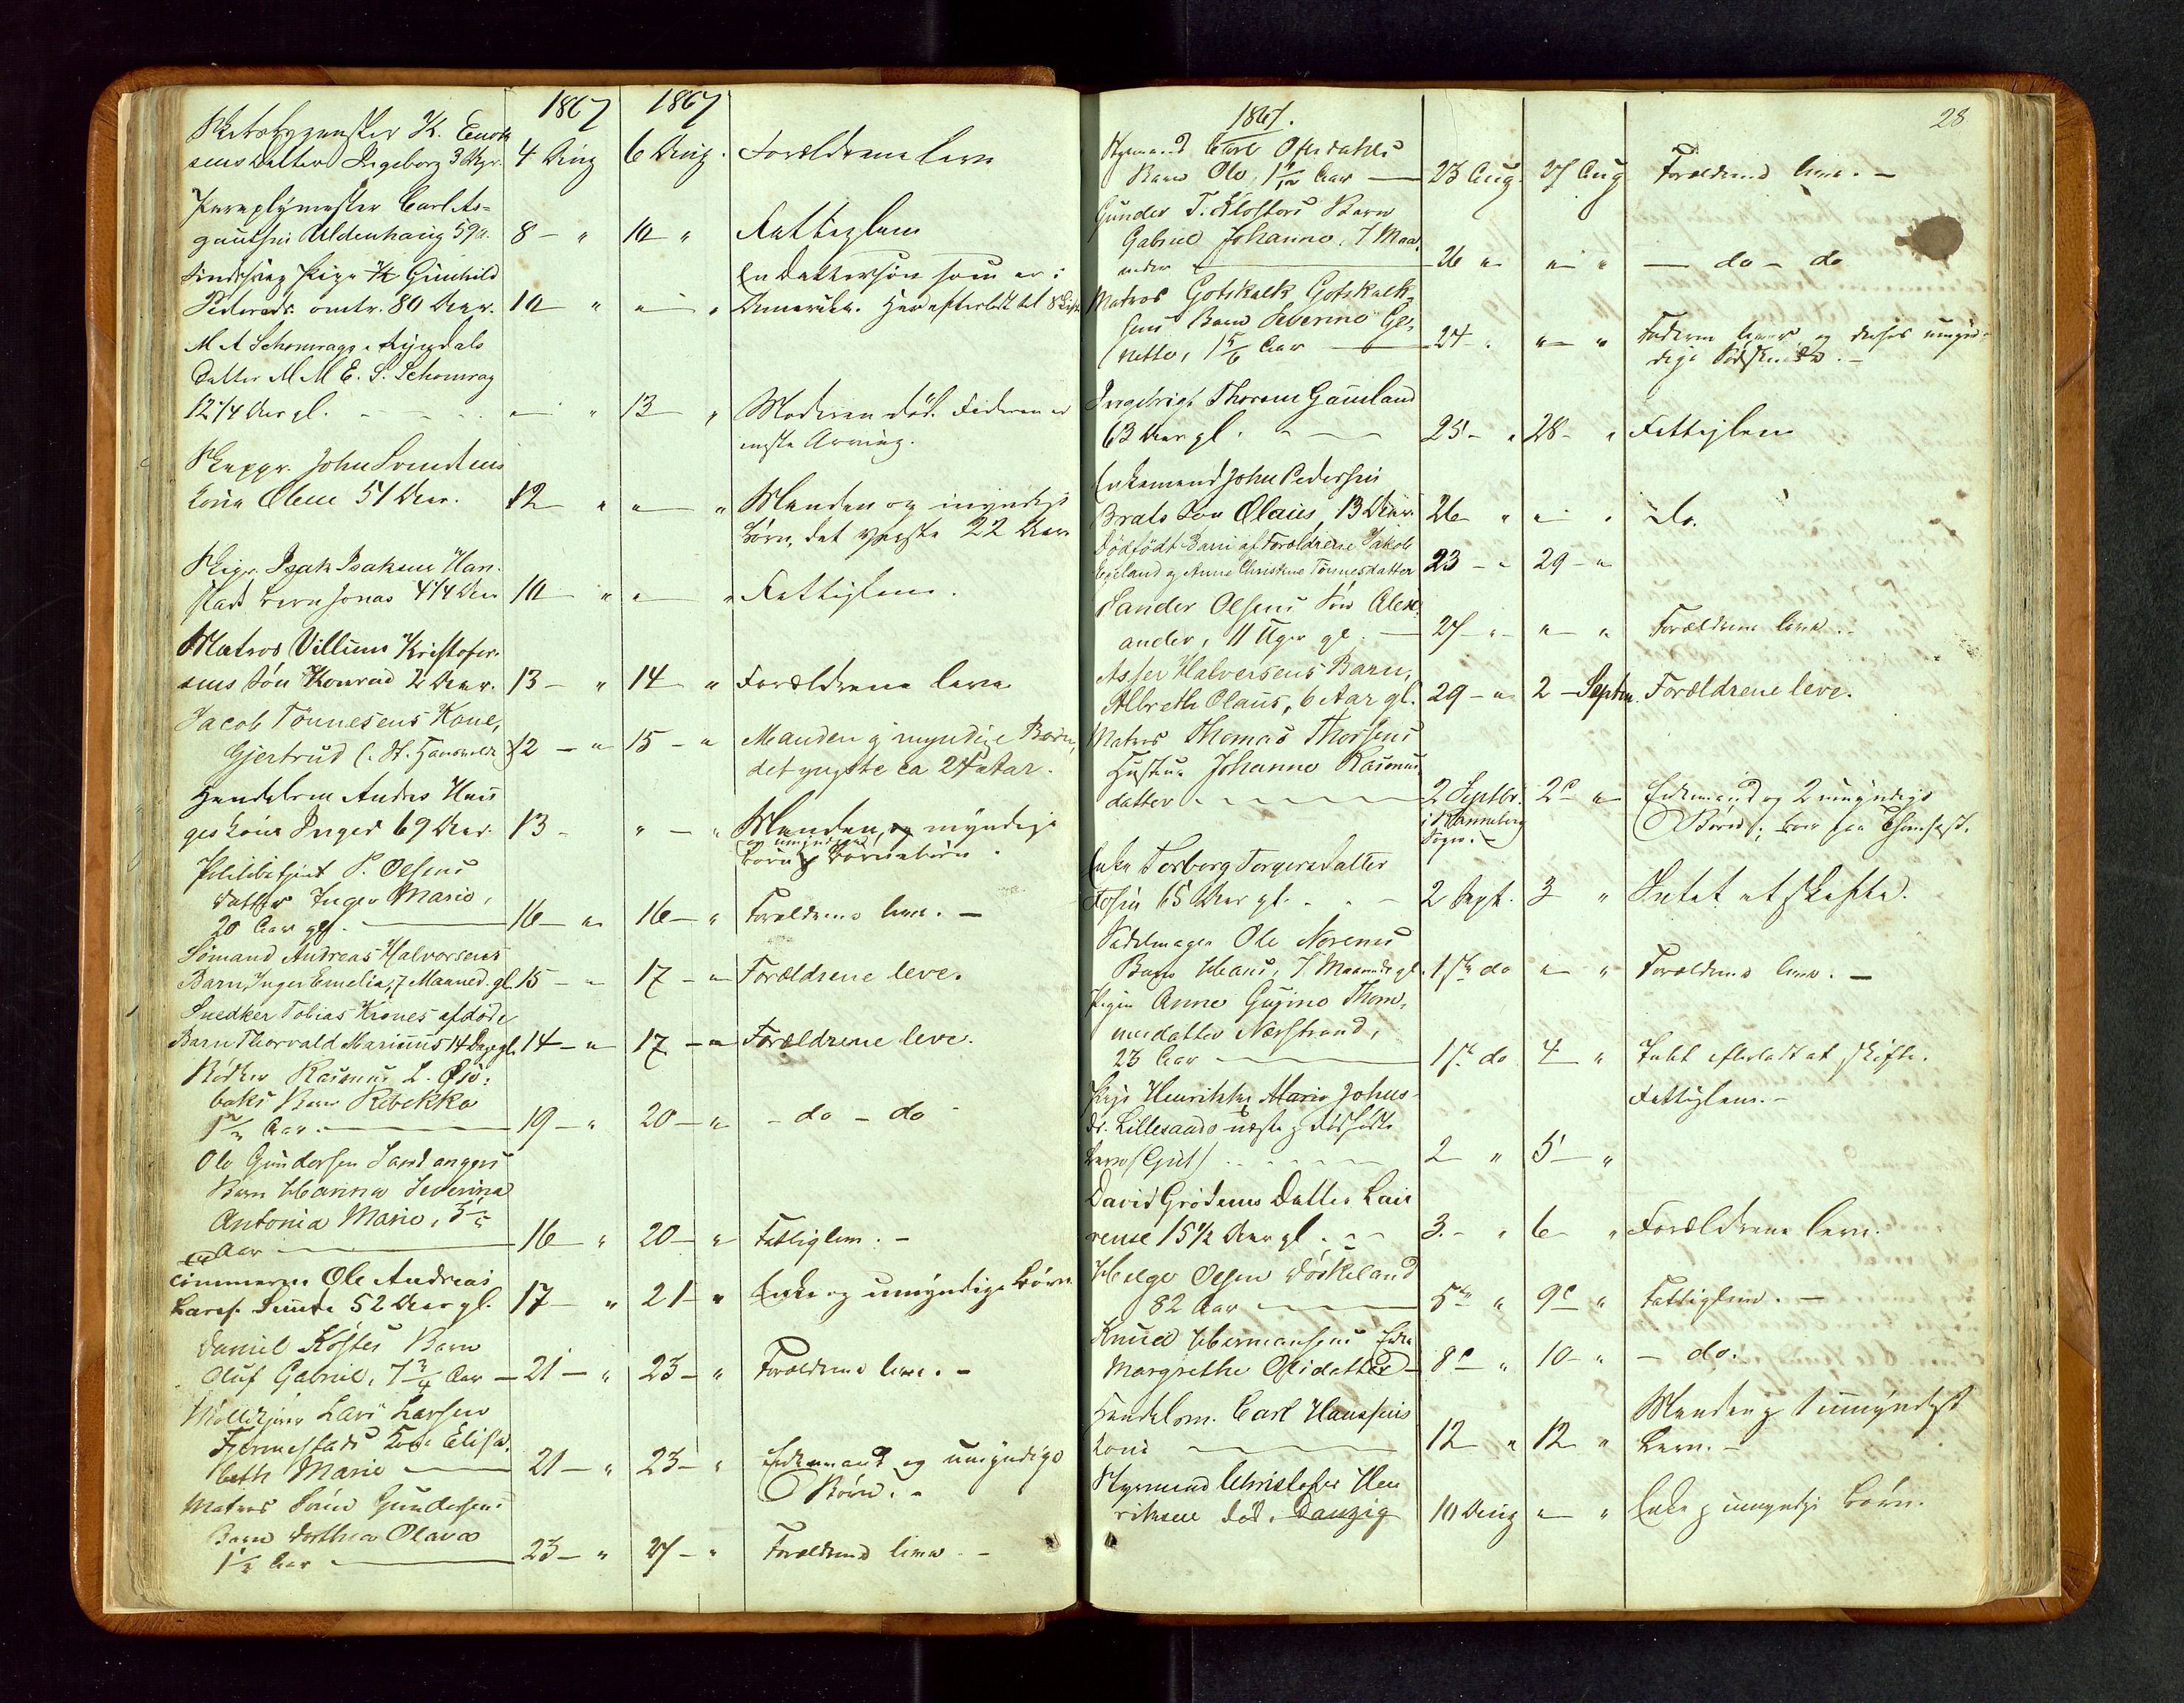 1867 1867
sens Datter Ingeborg 3 Uger. 4 Aug 6 Aug. Forældrene leve
Paraplymester Carl As-
gautsen Uldenhaug 59 a. 8 - " 10 " Fattiglem
Pige Gunhild En Dattersøn som er i
Pedersdr. omtr. 80 Aar. 10 " " - " Amerika.
M A Schomrags
Datter M M E. S. Schomrag
12 1/4 Aar gl. - " 13 " Moderen död. Faderen er
eneste Arving.
Skippr. John Svendsens
Kone Olene 51 Aar. 12 " " - " Manden og myndige
Børn, det yngste 22 Aar
Isak Isaksen Han-
stads Barn Jonas 4 1/4 Aar 10 " " - " Fattiglem.
Matros Villum Kristofer-
sens Sön Konrad 2 Aar. 13 - " 14 " Forældrene leve
Jacob Tönnesens Kone,
Gjertrud 12 - " 15 - " Manden og myndige Børn,
det yngste ca 24 Aar.
Handelsm Andres Hau
ges Kone Inger 69 Aar. 13 - " - " Manden, og myndige
og umyndige
Børn og Børnebørn.
Politibetjent P. Olsens
Datter Inger Marie,
20 Aar gl. 16 - " 16 - " Forældrene leve. -
Sömand Andreas Halvorsens
Barn, Inger Emelia, 7 Maaned. gl. 15 - " 17 - " Forældrene leve.
Snedker Tobias Krones afdöde
Barn Thorvald Marinius 14 Dage gl. 14 - " 17 - " Forældrene leve.
Bödker Rasmus L.
Barn Rebekka
1 1/2 Aar. 19 - " 20 - " - do - do
Ole Gundersen Sandangers
Barn Hanna Severine
Antonia Marie,
Aar 16 " 20 - " Fattiglem. -
Tömmerm Ole Andreas
Larss. Sunde 52 Aar gl. 17 - " 21 - " Enke og umyndige Börn
Daniel Kösters Barn
Oluf Gabriel, 7 3/4 Aar - 21 - " 23 - " Forældrene leve. -
Lars Larsen
Fjermestads Kone Elisa-
beth Marie 21 - " 23 - " Enkemand og umyndige
Børn. -
Matros Sören Gundersens
Barn Dorthea Olava
1 1/2 Aar 23 - " 27 - " Forældrene leve. -
28
1867.
Styrmand Carl Oftedahls
Barn Ole, Aar 23 Aug. 27 Aug Forældrene leve. -
Gunder T. Klosters Barn
Gabriel Johanne, 7 Maa-
neder 26 " " " - do - do
Matros Gotskalk Gotskalk-
sens Barn Severine Ge-
nette, 1 5/6 Aar 24 " " - " Faderen lever og deres umyn-
dige Södskende. -
Ingebrigt Thorsen Gauland
63 Aar gl. 25 - " 28 - " Fattiglem
Enkemand John Pedersen
Brats Sön Olaus 13 Aar 26 " " - " do.
Dödfödt Barn af Forældrene Jakob
Egeland og Anne Christine Tönnesdatter 23 - " 29 - "
Sander Olsens Sön Alex-
ander, 11 Uger gl. - 27 " " " Forældrene leve. -
Asser Halversens Barn,
Albreth Olaus, 6 Aar gl. 29 - " 2 - Septbr. Forældrene leve.
Matros Thomas Thorsens
Hustru Johanne Rasmus-
datter 2 Septbr. 2 " Enkemand og 2 umyndige
i Sogn. Børn;
Enke Torborg Torgersdatter
65 Aar gl. 2 Sept. 3 " Intet at skifte.
Sadelmager Ole Norems
Barn Hans, 7 Maaneder gl. 1ste do " " Forældrene leve. -
Pigen Anne Gurine Thom-
Nærstrand,
23 Aar 1ste do 4 " Intet efterladt at skifte.
Pige Henrikke Marie Johns- Fattiglem. -
dr. Lillesands
Barn (Gut) 2 " 5 "
David Grödems Datter Lau
rense 15 1/2 Aar gl. 3 - " 6 " Forældrene leve.
Helge Olsen Döskeland
82 Aar 5te " 9 " Fattiglem. -
Knud Hermansens Enke
Margrethe 8 " 10 - " - do.
Handelsm. Carl Hansens Manden og 1 umyndigt
Kone 12 " 12 " Barn. -
Styrmand Christofer Hen
riksen död i Danzig 10 Aug " - " Enke og umyndige Börn.